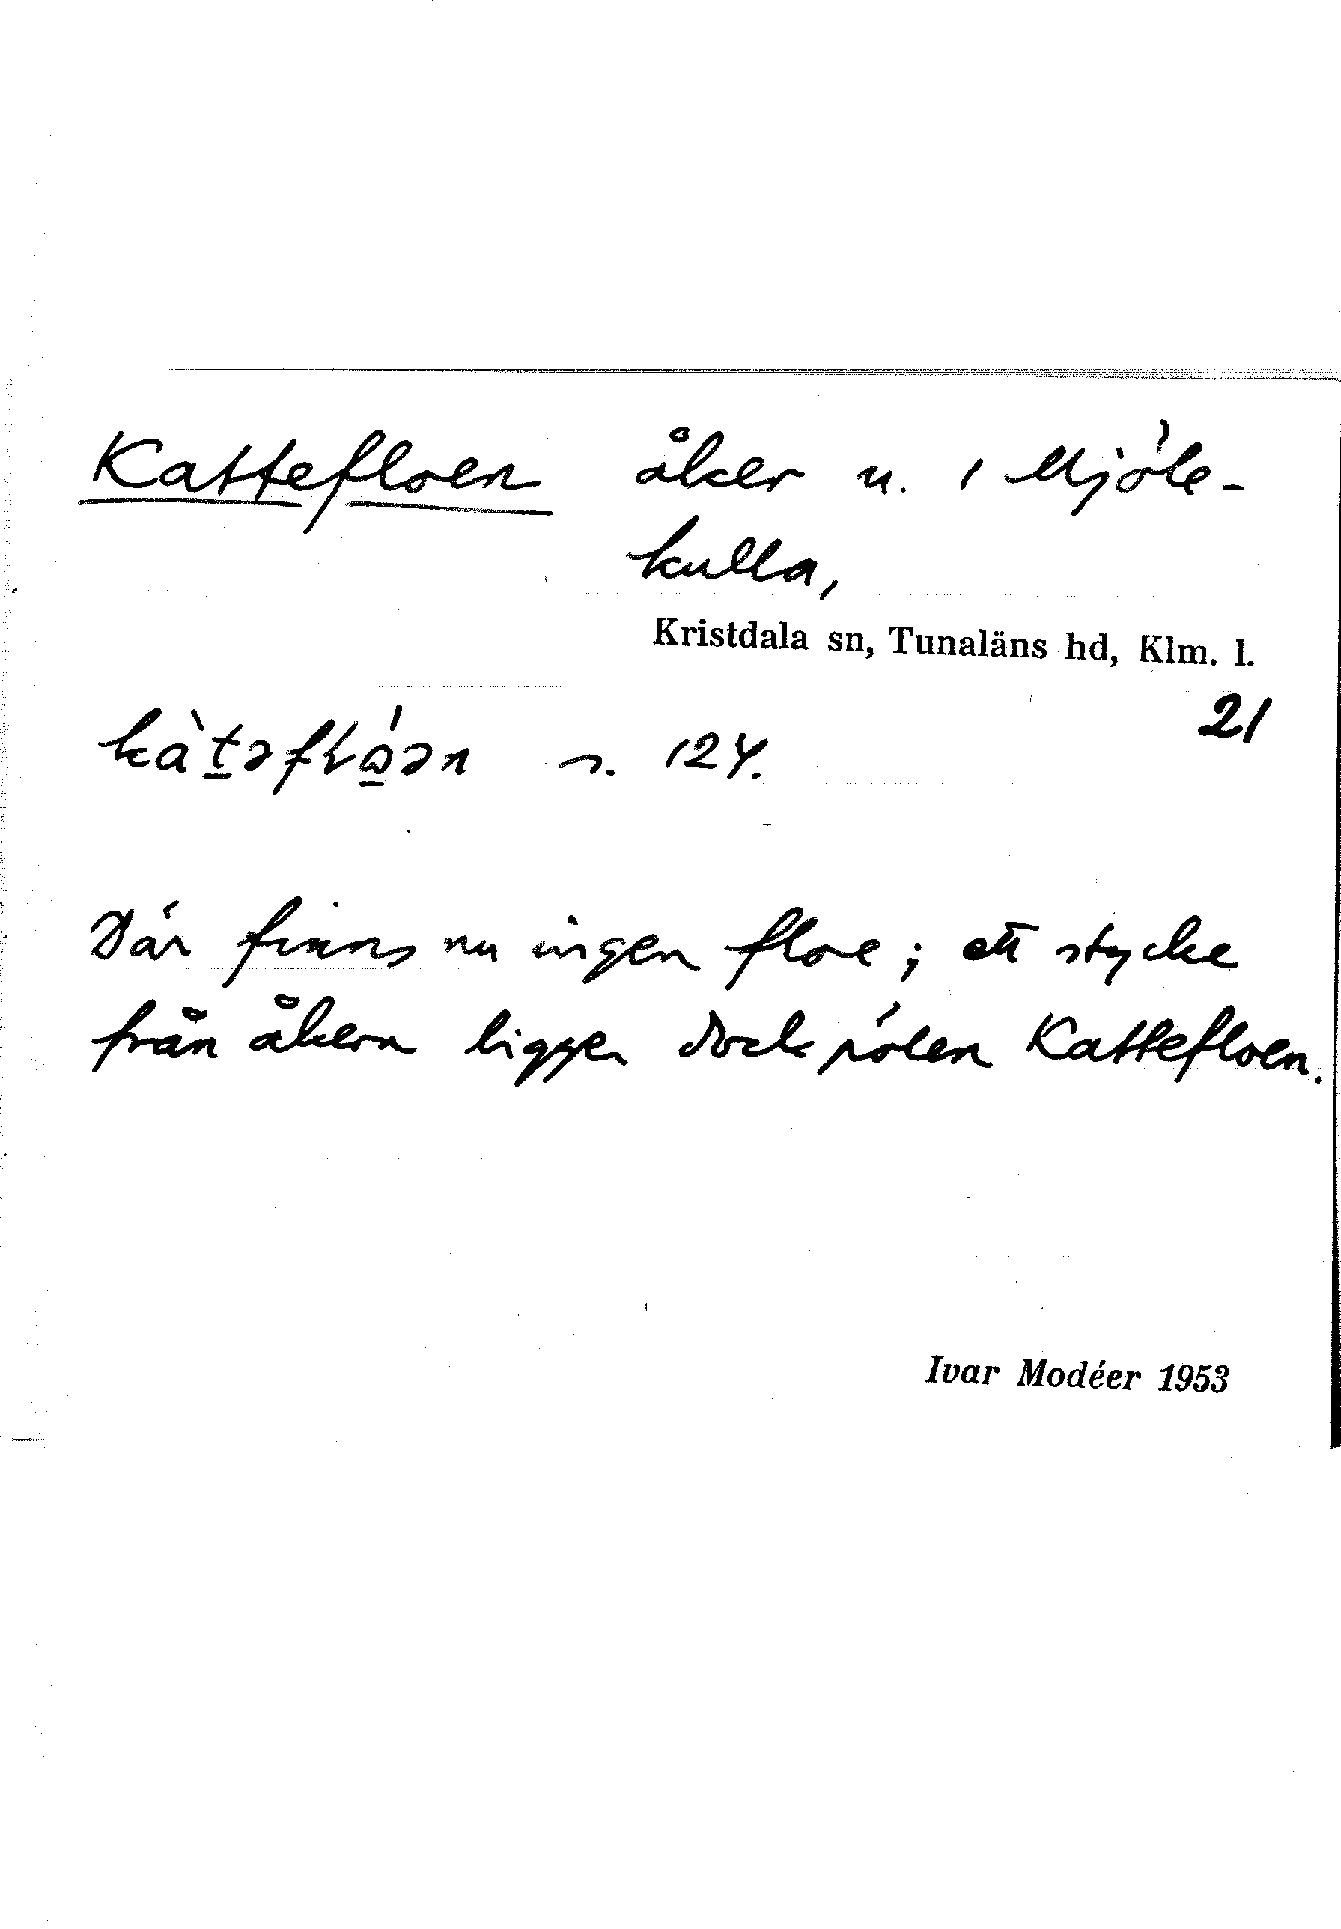 Kattefloen åker u. 1 Mjöle-
kulla,
Kristdala sn, Tunaläns hd, Klm. l.
21
kàt̠əfɫɑ̠́ən s. 124.
Där finns nu ingen floe; ett stycke
från åkern ligger dock jölen Kattefloen.
Ivar Modéer 1953